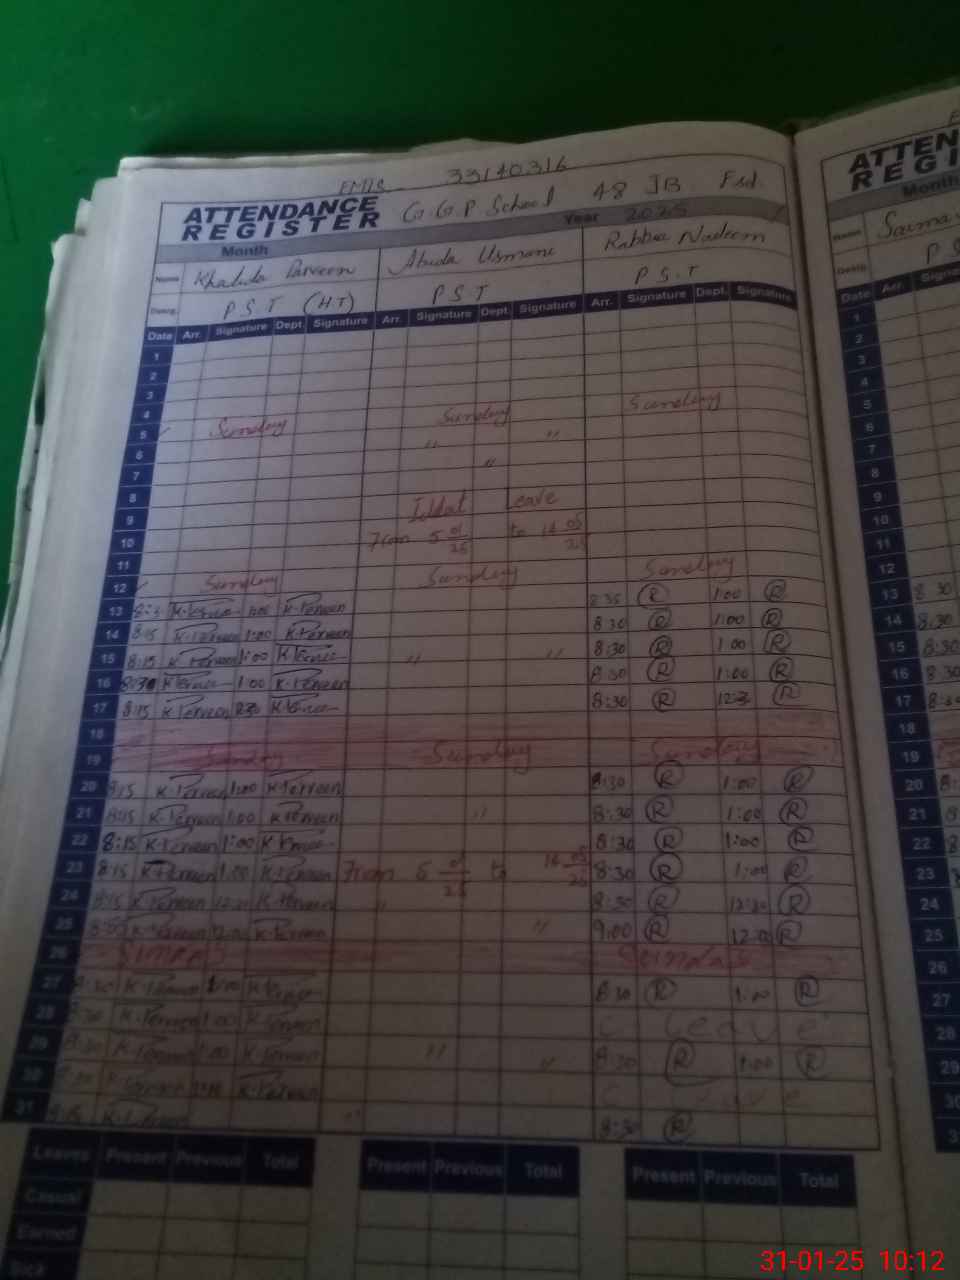 EMIS 33140316
ATTENDANCE REGISTER G.G.P School 48 JB Fsd.
Month Year 2025
Name Khalida Parveen Abida Usmani Rabbia Nadeem
Desig. P.S.T (H.T) P.S.T P.S.T
Date Arr. Signature Dept. Signature Arr. Signature Dept. Signature Arr. Signature Dept. Signature
1
2
3
4
5 Sunday Sunday Sunday
6 " "
7 "
8
9 Iddat Leave
10 From 5 01/25 to 14 05/25
11
12 Sunday Sunday Sunday
13 K. Perveen 8:35 R 1:00 R
14 8:15 K. Perveen 1:00 K. Perveen 8:30 R 1:00 R
15 8:15 K. Perveen 1:00 " " 8:30 R 1:00 R
16 8:30 1:00 K. Perveen 8:30 R 1:00 R
17 8:15 K. Perveen 8:30 R R
18
19 Sunday Sunday Sunday
20 8:15 K. Perveen 1:00 K. Perveen 8:30 R 1:00 R
21 8:15 K. Perveen 1:00 K. Perveen " 8:30 R 1:00 R
22 8:15 K. Perveen 1:00 8:30 R 1:00 R
23 8:15 K. Perveen 1:00 K. Perveen From 5 01/25 to 14 05/25 8:30 R 1:00 R
24 8:15 K. Perveen K. Perveen " 8:30 R 12:30 R
25 K. Perveen K. Perveen " 9:00 R R
26 Sunday Sunday
27 K. Perveen 1:00 8:30 R 1:00 R
28 K. Perveen 1:00 K. Perveen C Leave
29 K. Perveen 1:00 K. Perveen " " 8:30 R 1:00 R
30 K. Perveen C Leave
31 8:15 K. Perveen " 8:30 R
Leaves Present Previous Total Present Previous Total Present Previous Total
Casual
Earned
Sick
ATTEN
REGI
Month
Name Saima
Desig. P S
Date Arr.
1
2
3
4
5
6
7
8
9
10
11
12
13 8 30
14 8:30
15 8:30
16 8:30
17 8:30
18
19
20
21
22
23
24
25
26
27
28
29
31-01-25 10:12